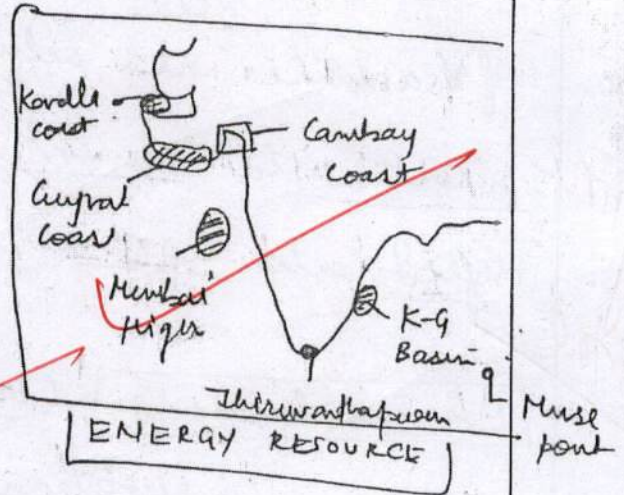 Kandla
coast
Cambay
Coast
Gujrat
Coast
Mumbai
Higer
K-G
Basin
Thiruvanthapuram
ENERGY RESOURCE